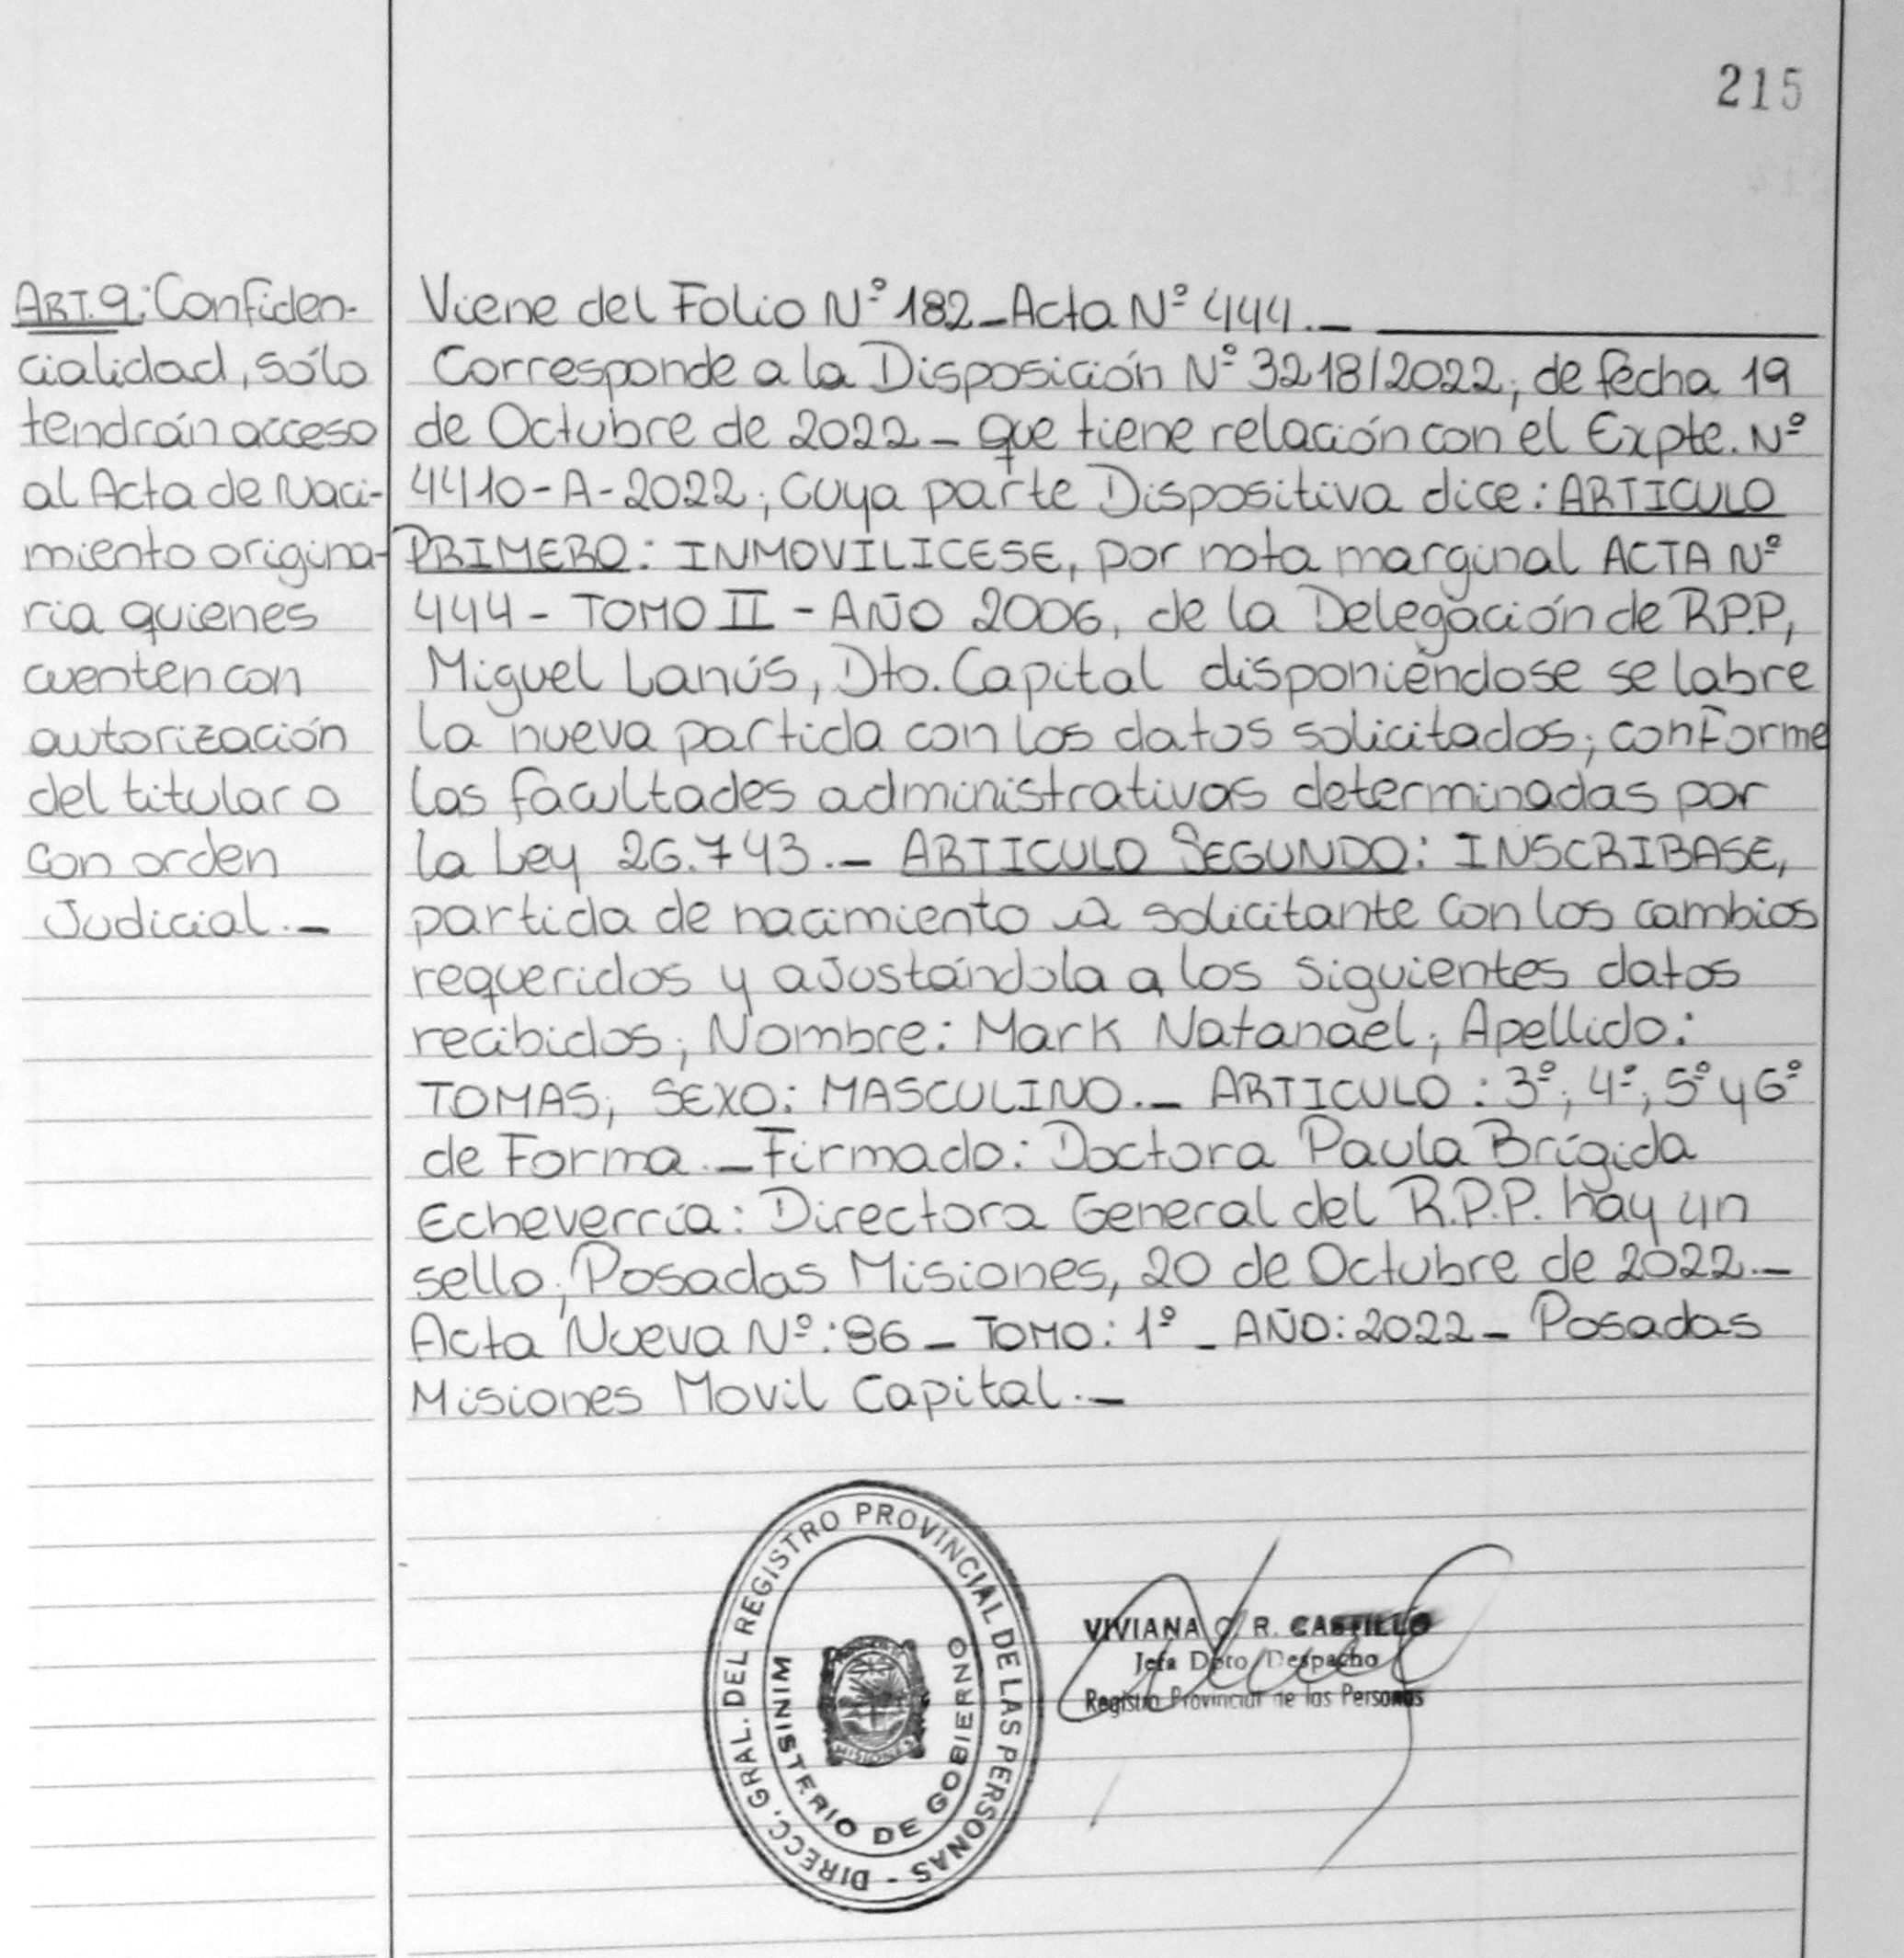 215
ART. 9: Confiden-
cialidad, sólo
tendrán acceso
al Acta de Naci-
miento origina-
ria quienes
cuenten con
autorización
del titular o
con orden
Judicial ._
Viene del Folio Nº 182_Acta Nº 444._
Corresponde a la Disposición Nº 3218/2022, de fecha 19
de Octubre de 2022 _ que tiene relación con el Expte. Nº
4410-A-2022; Cuya parte Dispositiva dice: ARTICULO
PRIMERO: INMOVILICESE, por nota marginal ACTA Nº
444 - TOMO II - AÑO 2006, de la Delegación de R.P.P,
Miguel Lanús, Dto. Capital disponiéndose se labre
la nueva partida con los datos solicitados; conforme
las facultades administrativas determinadas por
la Ley 26.743._ ARTICULO SEGUNDO: INSCRIBASE,
partida de nacimiento a solicitante con los cambios
requeridos y aJustándola a los siguientes datos
recibidos; Nombre: Mark Natanael; Apellido:
TOMAS; SEXO: MASCULINO._ ARTICULO : 3º; 4º; 5º y 6º
de Forma._Firmado: Doctora Paula Brígida
Echeverría: Directora General del R.P.P. hay un
sello; Posadas Misiones, 20 de Octubre de 2022._
Acta Nueva Nº: 86 _ TOMO: 1º _ AÑO: 2022 _ Posadas
Misiones Movil Capital._
DIRECC. GRAL. DEL REGISTRO PROVINCIAL DE LAS PERSONAS -
MINISTERIO DE GOBIERNO
MISIONES
VIVIANA C. R. CASTILLO
Jefa Dpto. Despacho
Registro Provincial de las Personas